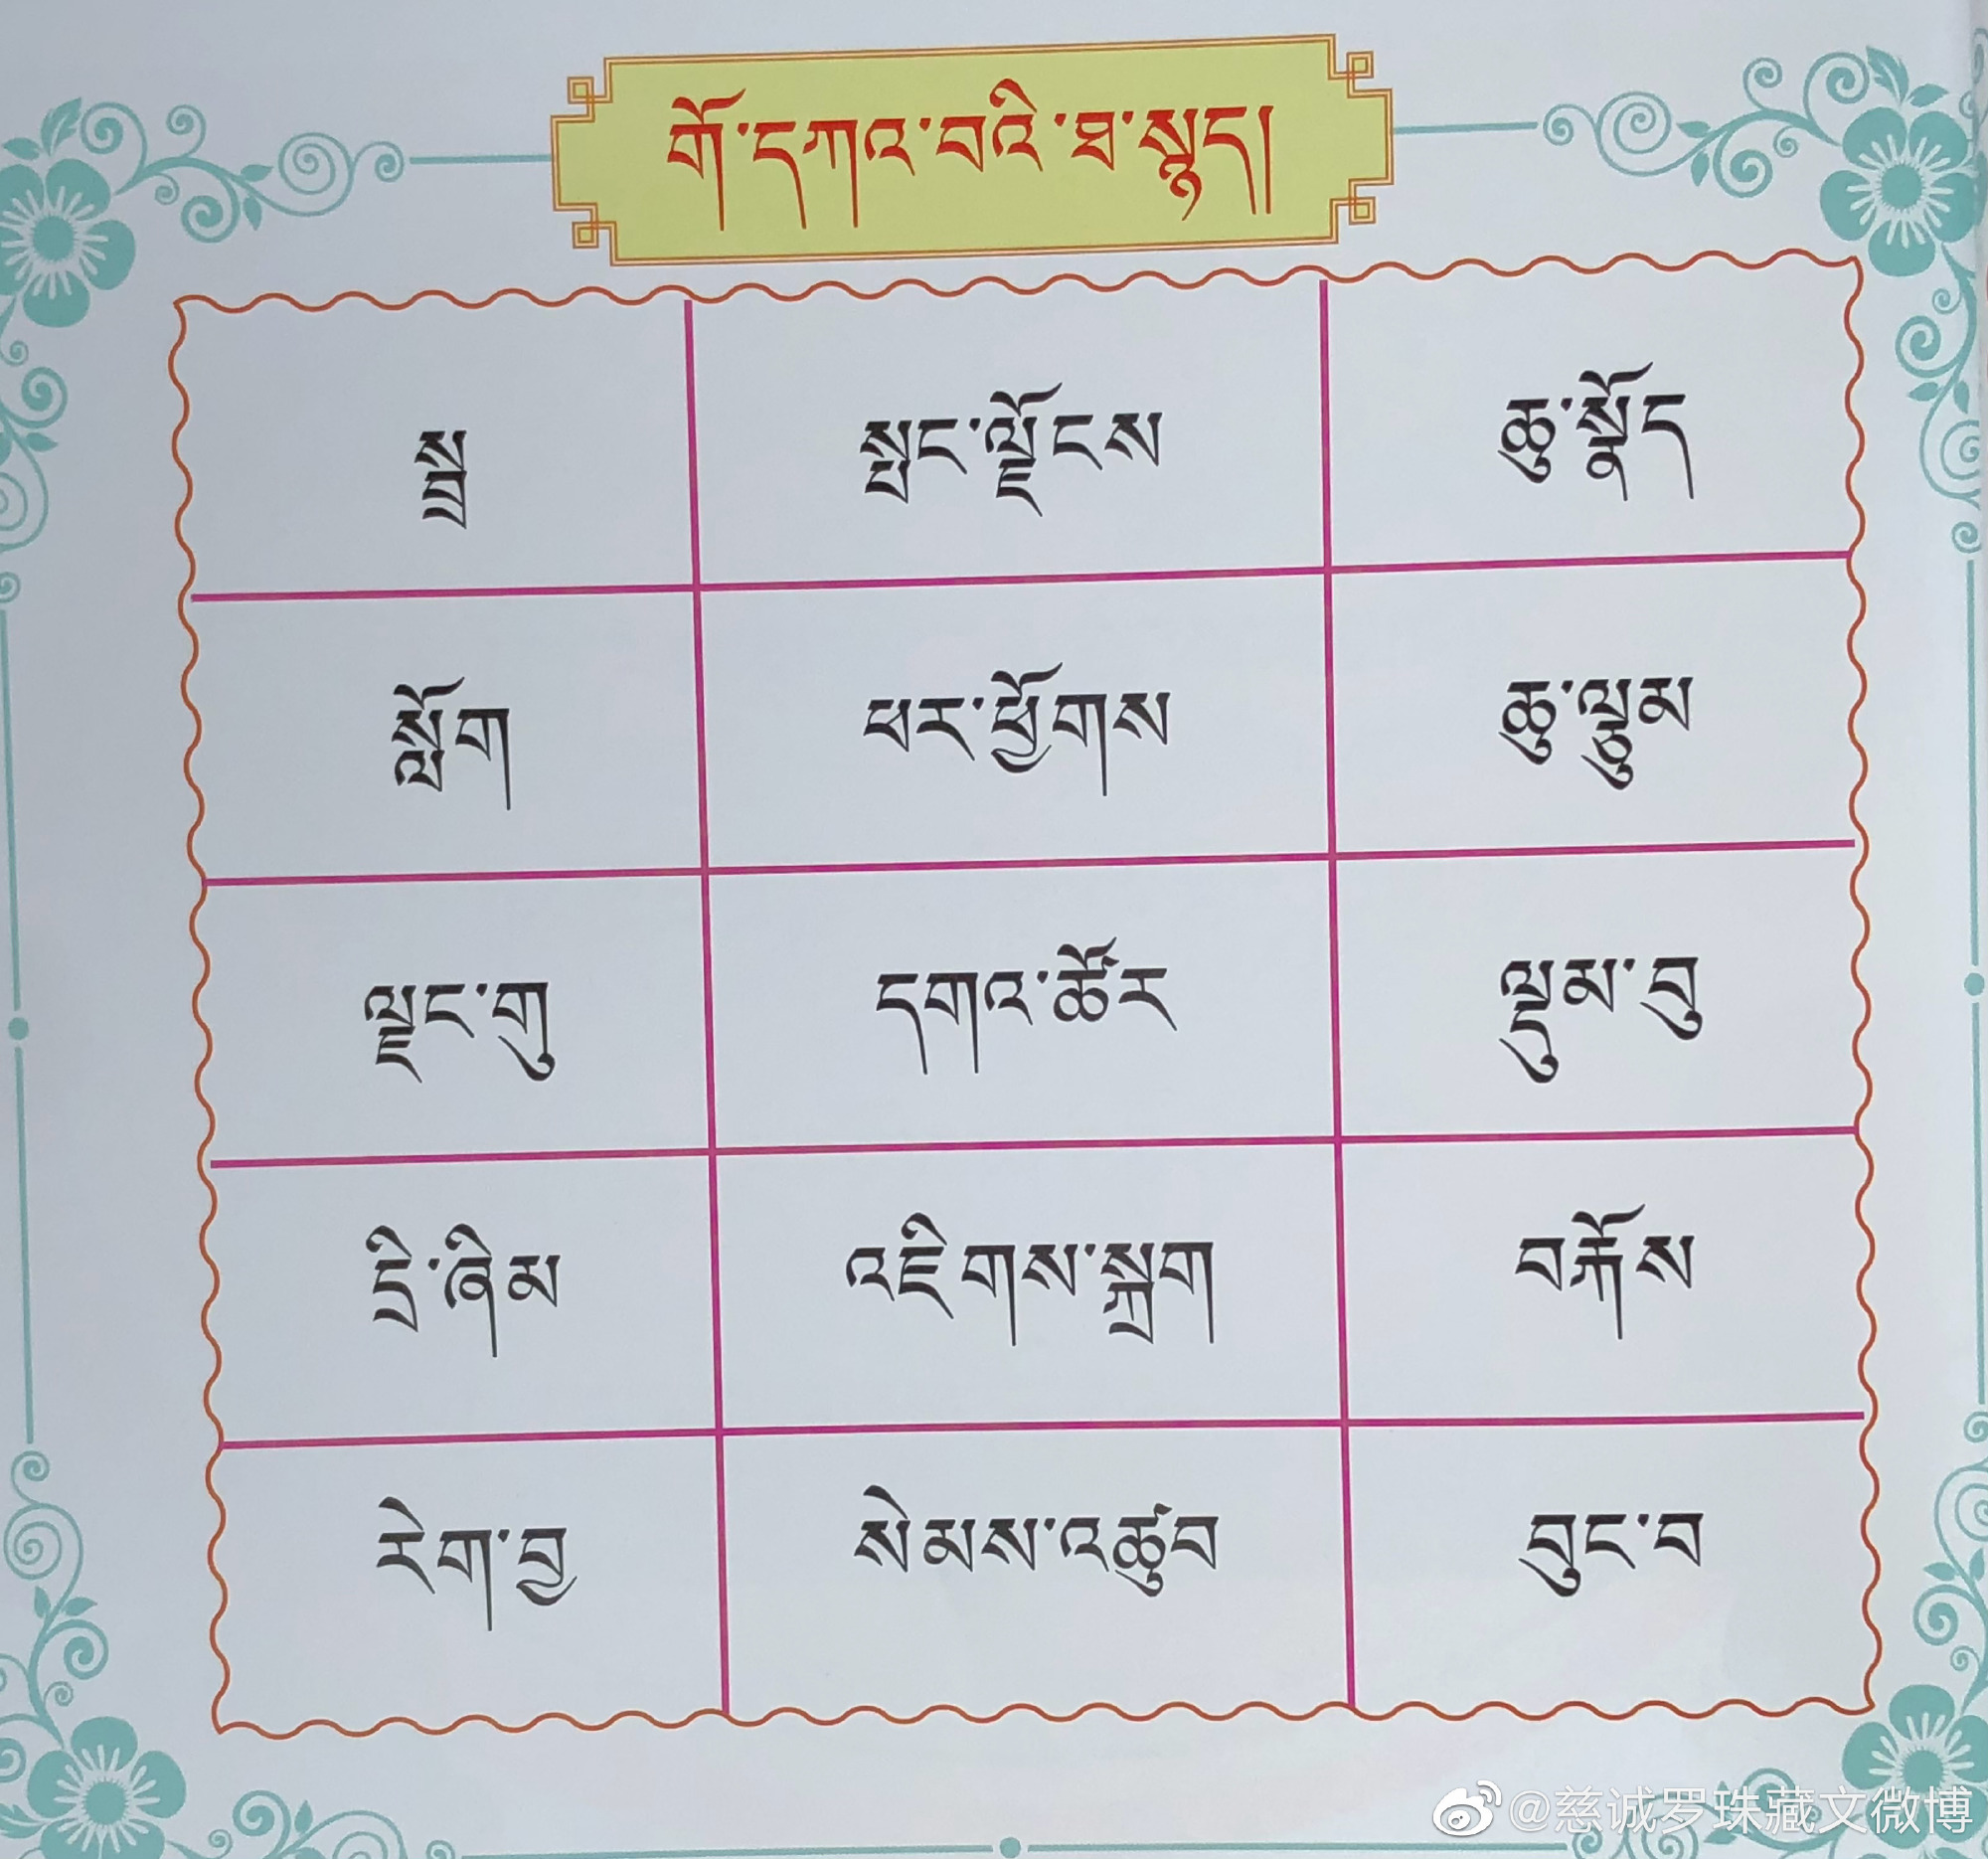 གོ་དཀའ་བའི་ཐ་སྙད།
སྦྲ སྤང་ལྗོངས ཆུ་སྣོད
སློག ཕར་ཕྱོགས ཆུ་ལྕུམ
ལྗང་གུ དགའ་ཚོར ལྡུམ་བུ
དྲི་ཞིམ འཇིགས་སྐྲག བརྐོས
རེག་བྱ སེམས་འཚུབ བུང་བ
@慈诚罗珠藏文微博